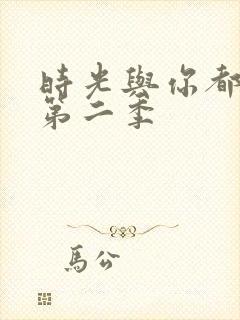 時光與你都
第二季
馬公